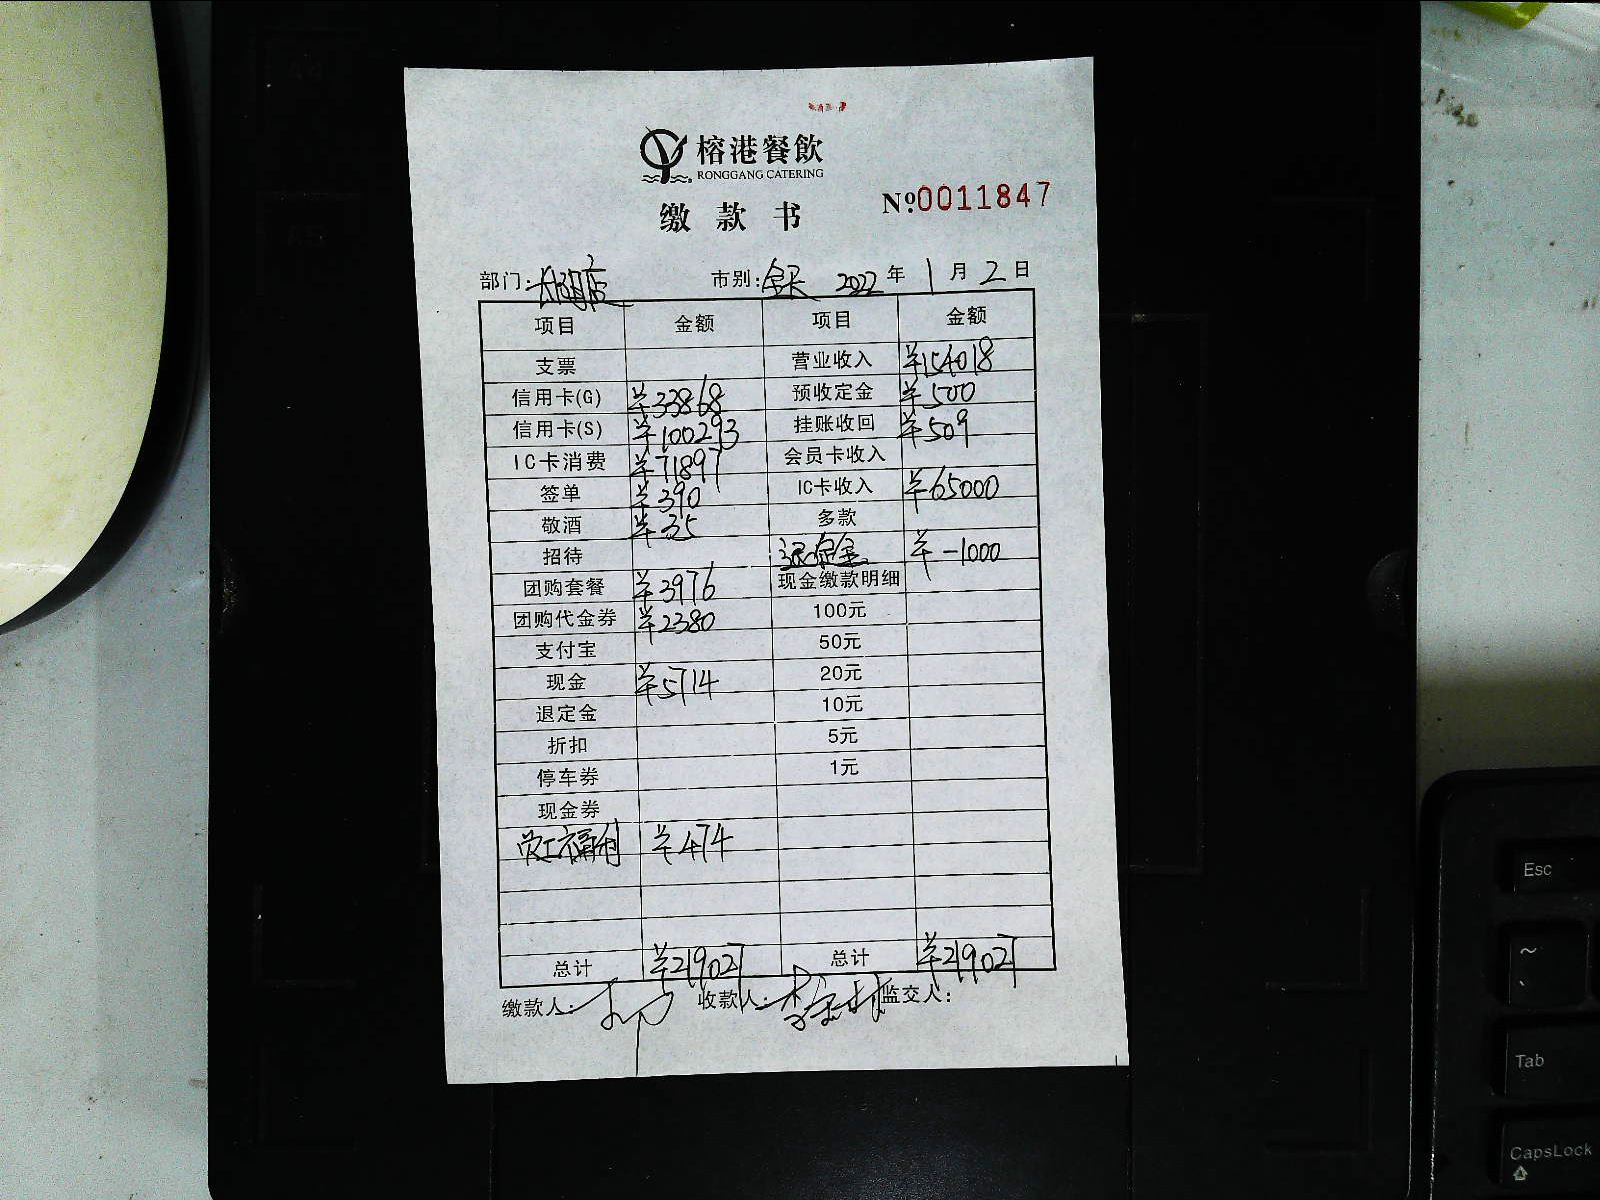 榕港餐飲
RONGGANG CATERING
缴款书
Nº0011847
部门: 市别:全天 2022年1月2日
项目 金额 项目 金额
支票 营业收入 ¥154018
信用卡(G) ¥33868 预收定金 ¥500
信用卡(S) ¥100293 挂账收回 ¥509
IC卡消费 ¥71897 会员卡收入
签单 ¥390 IC卡收入 ¥65000
敬酒 ¥35 多款
招待 退定金 ¥-1000
团购套餐 ¥3976 现金缴款明细
团购代金券 ¥2380 100元
支付宝 50元
现金 ¥5714 20元
退定金 10元
折扣 5元
停车券 1元
现金券
员工福利 ¥474
总计 ¥219027 总计 ¥219027
缴款人: 收款人: 监交人:
Esc
~
Tab
CapsLock